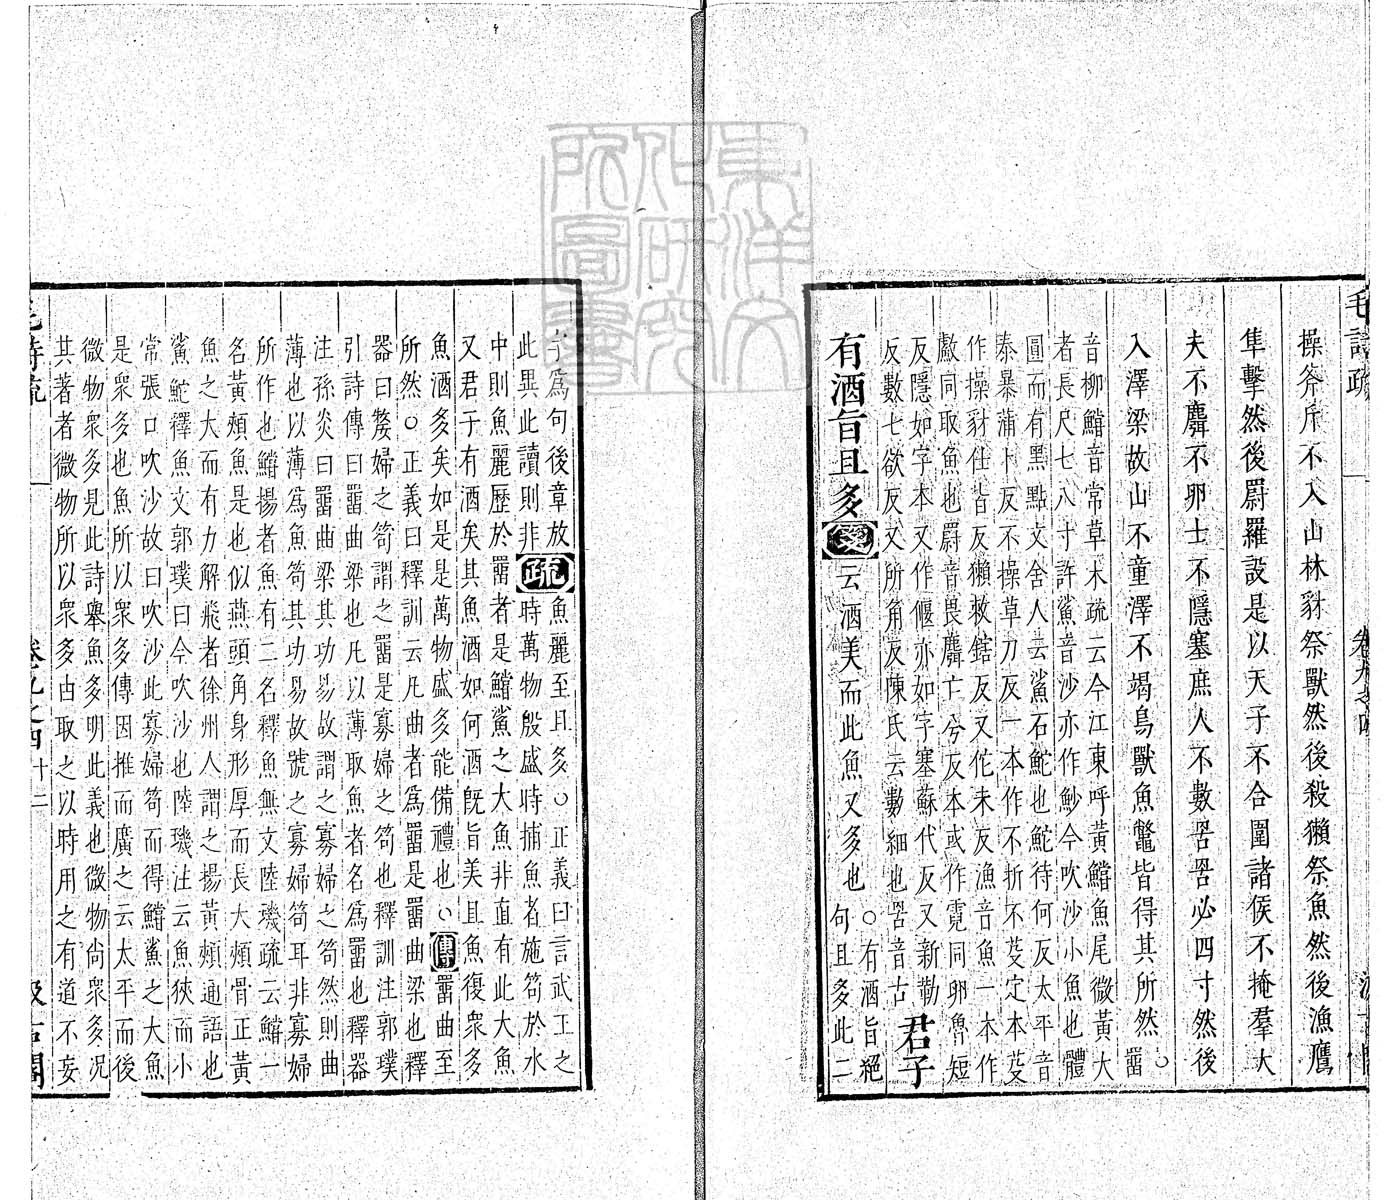 毛詩疏
操斧斤不入山林豺祭獸然後殺獺祭魚然後漁鷹
隼擊然後罻羅設是以天子不合圍諸侯不掩羣大
夫不麛不卵士不隱塞庶人不數罟罟必四寸然後
入澤梁故山不童澤不竭鳥獸魚鼈皆得其所然○罶
音柳鱨音常草木疏云今江東呼黃鱨魚尾微黃大
者長尺七八寸許鯊音沙亦作魦今吹沙小魚也體
圓而有黑點文舍人云鯊石鮀也鮀待何反太平音
泰暴蒲卜反不操草刀反一本作不折不芟定本芟
作操豺仕皆反獺敕鎋反又佗未反漁音魚一本作
䱷同取魚也罻音畏麛亡兮反本或作麑同卵魯短
反隱如字本又作偃亦如字塞蘇代反又新勒
反數七欲反又所角反陳氏云數細也罟音古
君子
有酒旨且多
箋云酒美而此魚又多也
○有酒旨絕
句且多此二
字爲句後章放
此異此讀則非
疏
魚麗至且多○正義曰言武王之
時萬物殷盛時捕魚者施笱於水
中則魚麗歷於罶者是鱨鯊之大魚非直有此大魚
又君子有酒矣其魚酒如何酒旣旨美且魚復衆多
魚酒多矣如是是萬物盛多能備禮也○傳罶曲至
所然○正義曰釋訓云凡曲者爲罶是罶曲梁也釋
器曰嫠婦之笱謂之罶是寡婦之笱也釋訓注郭璞
引詩傳曰罶曲梁也凡以薄取魚者名爲罶也釋器
注孫炎曰罶曲梁其功易故謂之寡婦之笱然則曲
薄也以薄爲魚笱其功易故號之寡婦笱耳非寡婦
所作也鱨揚者魚有二名釋魚無文陸璣疏云鱨一
名黃頰魚是也似燕頭角身形厚而長大頰骨正黃
魚之大而有力解飛者徐州人謂之揚黃頰通語也
鯊鮀釋魚文郭璞曰今吹沙也陸璣注云魚狹而小
常張口吹沙故曰吹沙此寡婦笱而得鱨鯊之大魚
是衆多也魚所以衆多傳因推而廣之云太平而後
微物衆多見此詩舉魚多明此義也微物尚衆多況
其著者微物所以衆多由取之以時用之有道不妄
毛詩疏
卷九之四
十二
汲古閣